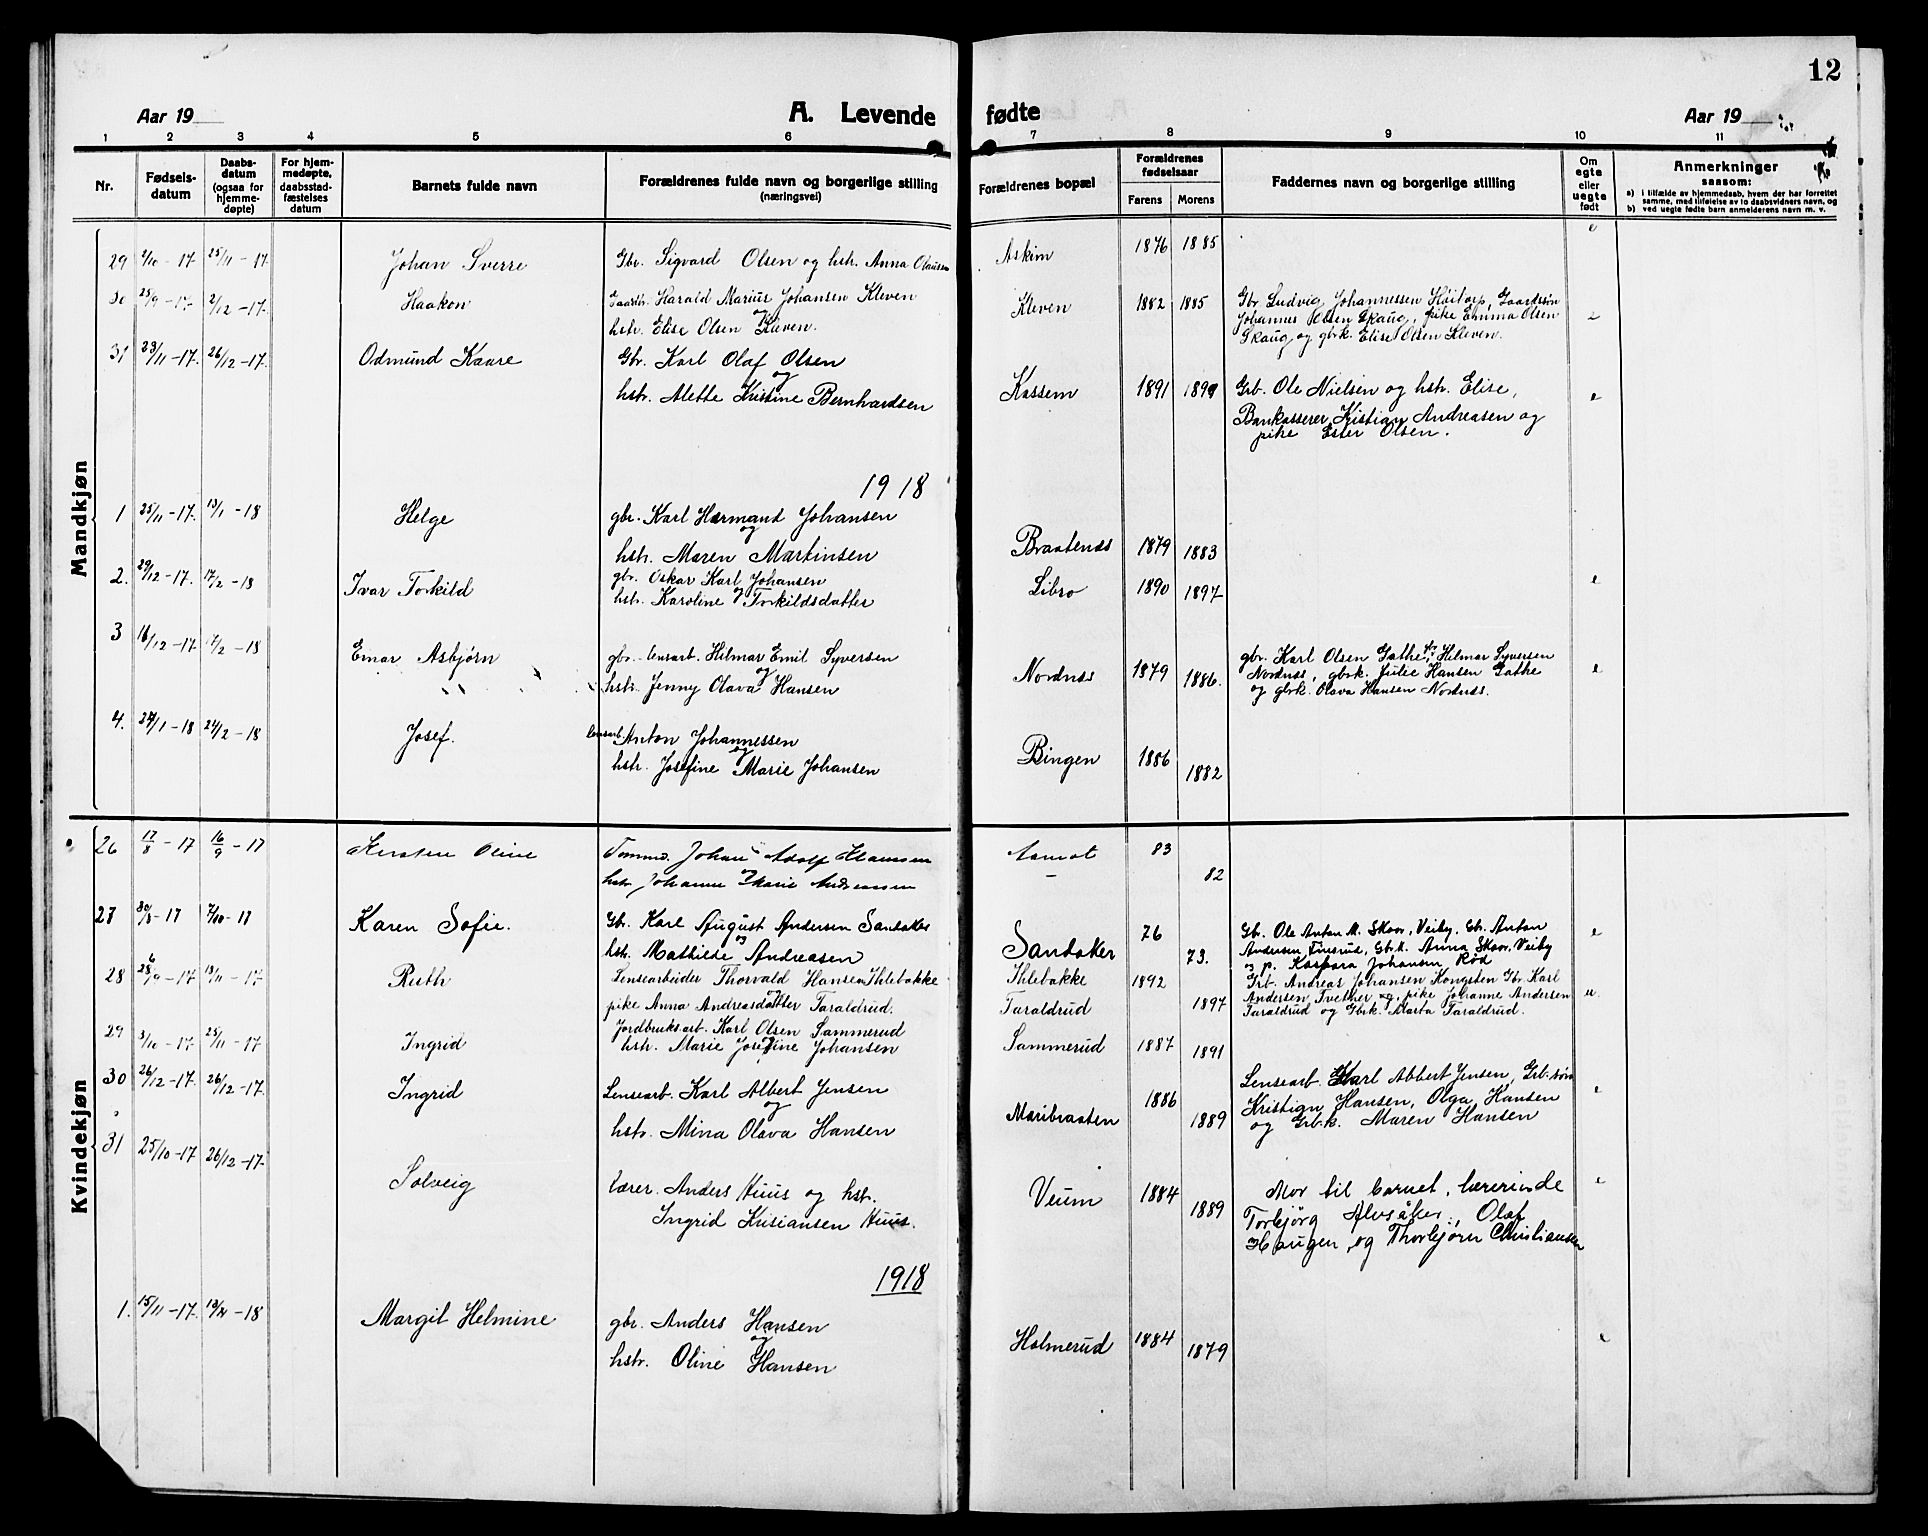 12
Aar 19
A. Levende
fødte
Aar 19
1 2 3 4 5 6 7 8 9 10 11
Nr.
Fødsels-
datum
Daabs-
datum
(ogsaa for
hjemme-
døpte)
For hjem-
medøpte,
daabsstad-
fæstelses
datum
Barnets fulde navn
Forældrenes fulde navn og borgerlige stilling
(næringsvei)
Forældrenes bopæl
Forældrenes
fødselsaar
Farens Morens
Faddernes navn og borgerlige stilling
Om
egte
eller
uegte
født
Anmerkninger
saasom:
a) i tilfælde av hjemmedaab, hvem der har forrettet
samme, med tilføielse av to daabsvidners navn, og
b) ved uegte fødte barn anmelderens navn m. v.
Mandkjøn
29 2/10 - 17. 25/11 - 17. Johan Sverre Gbr. Sigvard Olsen og hstr. Anna Olaussen Askim 1876 1885 e
30 25/9 - 17. 2/12 - 17. Haakon Gaardbr. Harald Marius Johansen Kleven Kleven 1882 1885 Gbr Ludvig Johannessen Høitorp, Gaardssøn
og
hstr. Elise Olsen Kleven. Johannes Olsen Skaug, pike Emma Olsen
Skaug og gbrk. Elise Olsen Kleven.
31 23/11 - 17. 26/12 - 17. Odmund Kaare Gbr. Karl Olaf Olsen
og
hstr. Alette Kristine Bernhardsen Kassem 1891 Grb. Ole Nielsen og hstr. Elise, e
Bankasserer Kistian Andreasen og
pike Ester Olsen.
1918
1 25/11 - 17. 13/1 - 18 Helge gbr. Karl Hermand Johansen
og
hstr. Maren Martinsen Braatenes 1879 1883
2. 29/12 - 17. 17/2 - 18 Ivar Torkild gbr. Oskar Karl Johansen
og
hstr. Karoline Torkildsdatter Libro 1890 1897 e
3 16/12 - 17. 17/2 - 18 Einar Asbjørn gbr. lensarb. Hilmar Emil Syversen
og
hstr. Jenny Olava Hansen Nordnes 1879 1886. gbr. Karl Olsen Gathe, Hilmar Syversen e
Nordnes, gbrk. Julie Hansen Gathe
og gbrk. Olava Hansen Nordnes.
4. 24/1 - 18 24/2 - 18 Josef. lensarb. Anton Johannessen
og
hstr. Josefine Marie Johansen Bingen 1886 1882
Kvindekjøn
26 17/8 - 17 16/9 - 17 Kirsten Oline Tømmd. Johan Adolf Hansen Aamot 83
hstr. Johanne Marie Andreassen 82
27 30/8 - 17 7/10 - 17 Karen Sofie. Gb. Karl August Andersen Sandaker
og
hstr. Mathilde Andreasen Sandaker 76 73. Gb. Ole Anton M. Skov, Veiby, Gb. Anton e
Andersen Finsrud, Gb.k. Anna Skov, Veiby
og p. Kaspara Johansen Rød
28 28/9 - 17. 18/11 - 17. Ruth Lensearbeider Thorvald Hansen Ihlebakke Ihlebakke 1892 Grb. Andreas Johansen Kongsten Gbr. Karl
og
pike Anna Andreasdatter Taraldrud. Taraldrud 1897 Andersen Tvether og pike Johanne Andersen u.
Taraldrud og Gbrk. Marta Taraldrud.
29 3/10 - 17. 25/11 - 17. Ingrid Jordbruksarb. Karl Olsen Sammerud
og
hstr. Marie Josefine Johansen Sammerud 1887 1891
30 26/12 - 17. 26/12 - 17. Ingrid Lensearb. Karl Albert Jensen
og
hstr. Mina Olava Hansen Maribraaten 1886 1889 Lensearb. Karl Abbert Jensen, Grb. søn e
Kristian Hansen, Olga Hansen
og Grb.k. Maren Hansen
31 25/10 - 17 26/12 - 17. Solveig lærer. Anders Huus og hstr.
Ingrid Krisiansen Huus. Veum 1884 1889 Mor til barnet, lærerinde e
Torbjørg Alvsåker, Olaf
Haugen, og Thorbjørn Christiansen
1918
1. 15/11 - 17. 13/1 - 18 Margit Helmine gbr. Anders Hansen
og
hstr. Oline Hansen Holmerud 1884 1879 e